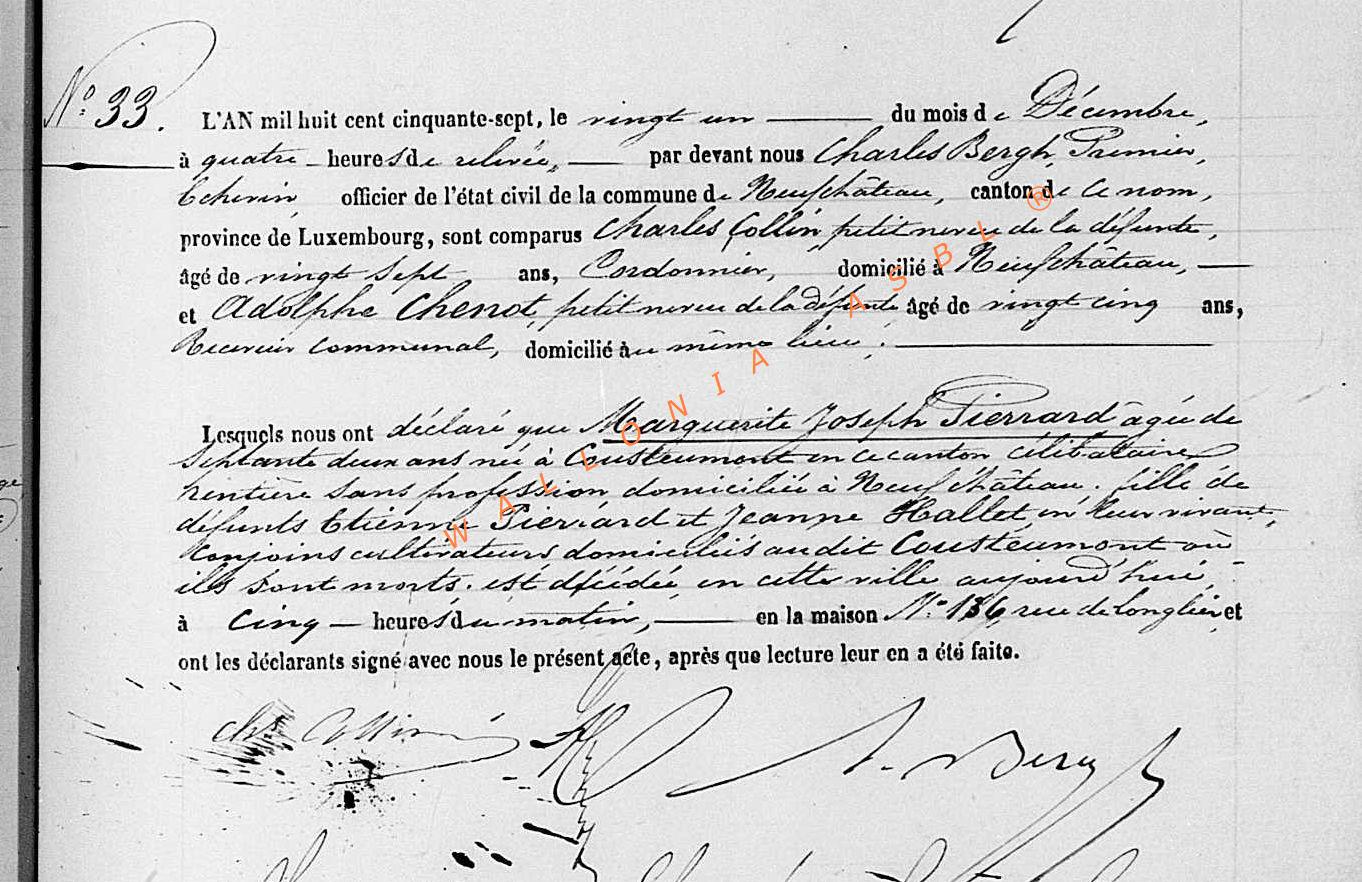 N° 33.
L'AN mil huit cent cinquante-sept, le vingt un du mois de Décembre,
à quatre heures de relevée, par devant nous Charles Bergh, Premier,
Echevin, officier de l'état civil de la commune de Neufchâteau, canton de ce nom,
province de Luxembourg, sont comparus Charles Collin, petit neveu de la défunte,
âgé de vingt sept ans, Cordonnier, domicilié à Neufchâteau,
et Adolphe Chenot, petit neveu de la défunte âgé de vingt cinq ans,
Receveur communal, domicilié au même lieu;
Lesquels nous ont déclaré que Marguerite Joseph Pierrard âgée de
Septante deux ans née à Cousteumont en ce canton célibataire
rentière sans profession domiciliée à Neufchâteau. fille de
défunts Etienne Pierrard et Jeanne Hallet, en leur vivant,
Conjoins cultivateurs domiciliés audit Cousteumont où
ils sont morts. est décédée en cette ville aujourd'hui,
à Cinq heures du matin, en la maison N° 186, rue de Longlier et
ont les déclarants signé avec nous le présent acte, après que lecture leur en a été faite.
Chs Collin
Bergh
WALLONIA ASBL ®